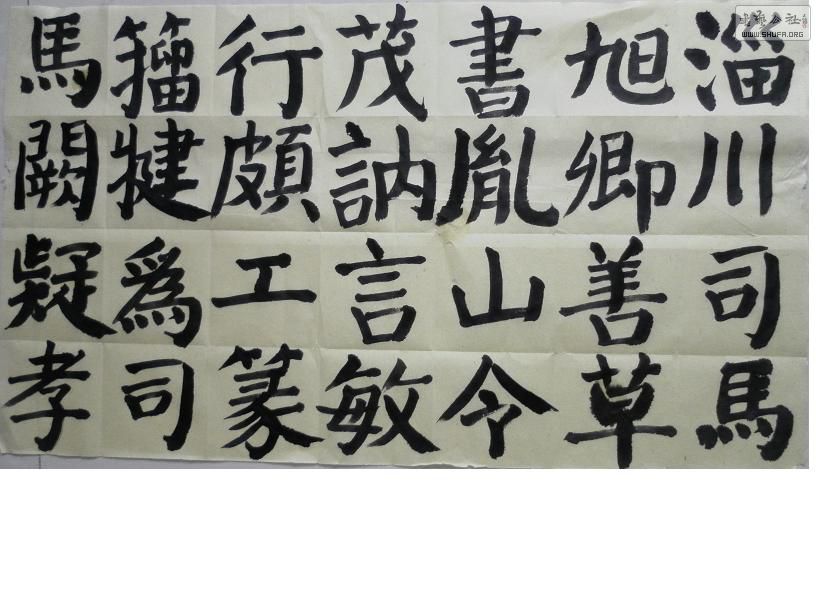 淄川司馬
旭卿善草
書胤山令
茂訥言敏
行頗工篆
籀犍爲司
馬闕疑孝
公社
WWW.SHUFA.ORG